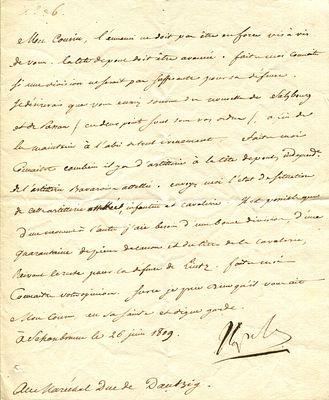 Mon Cousin, l'ennemi ne doit pas être en force vis à vis
de vous. la tête de pont doit être avancée. faites moi connaitre
si une division ne serait pas suffisante pour sa défense
Je désirerais que vous eussiez soin de
et de Passau / ces deux points sont sous vos ordres / afin de
les maintenir à l'abri de tout évènement. Faites moi
Connaitre combien il y a d'artillerie à la tête de pont, indépend.
de l'artillerie Bavaroise attelée. envoyez moi l'état de situation
de cette artillerie, infanterie et cavalerie. Il est possible que
d'un moment à l'autre j'aie besoin d'une bonne division, d'une
quarantaine de pièces de canon et de toute la cavalerie,
le reste pour la défense de Lintz. faites moi
Connaitre votre opinion. Sur ce je prie Dieu qu'il vous ait
Mon Cousin en sa sainte et digne garde.
à Schonbrunn le 26 juin 1809
Au Maréchal Duc de Dantzig.